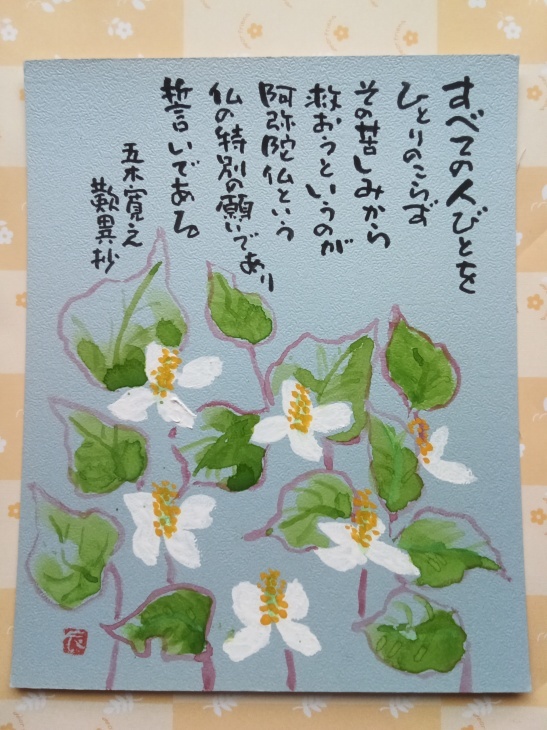 すべての人びとを
ひとりのこらず
その苦しみから
救おうというのが
阿弥陀仏という
仏の特別の願いであり
誓いである。
五木寛之
歎異抄